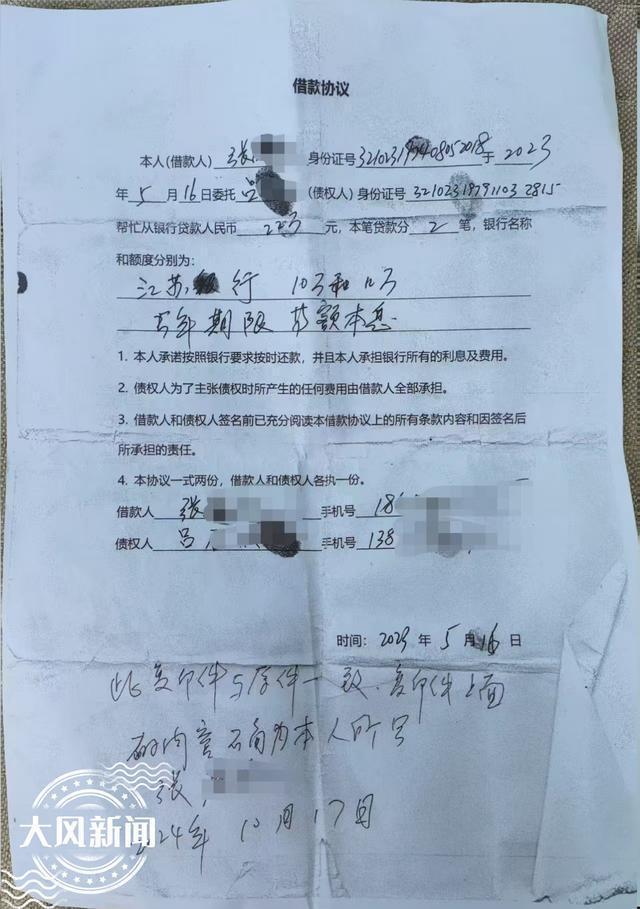 借款协议
本人(借款人) 张 身份证号 于 2023
年 5 月 16 日委托 吕 (债权人) 身份证号 321023197911032815
帮忙从银行贷款人民币 22万 元，本笔贷款分 2 笔，银行名称
和额度分别为：
江苏银行 10万和12万
五年期限 等额本息
1. 本人承诺按照银行要求按时还款，并且本人承担银行所有的利息及费用。
2. 债权人为了主张债权时所产生的任何费用由借款人全部承担。
3. 借款人和债权人签名前已充分阅读本借款协议上的所有条款内容和因签名后
所承担的责任。
4. 本协议一式两份，借款人和债权人各执一份。
借款人 张 手机号 18
债权人 吕 手机号 138
时间： 2023 年 5 月 16 日
此复印件与原件一致，复印件上面
的内容 为本人所写
张
2024年 10月17日
大风新闻